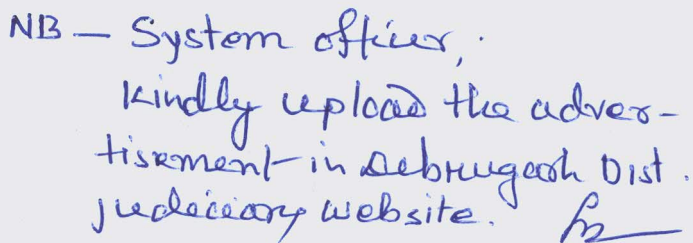 NB — System officer,
kindly upload the adver-
tisement in Debrugarh Dist.
judiciary website.